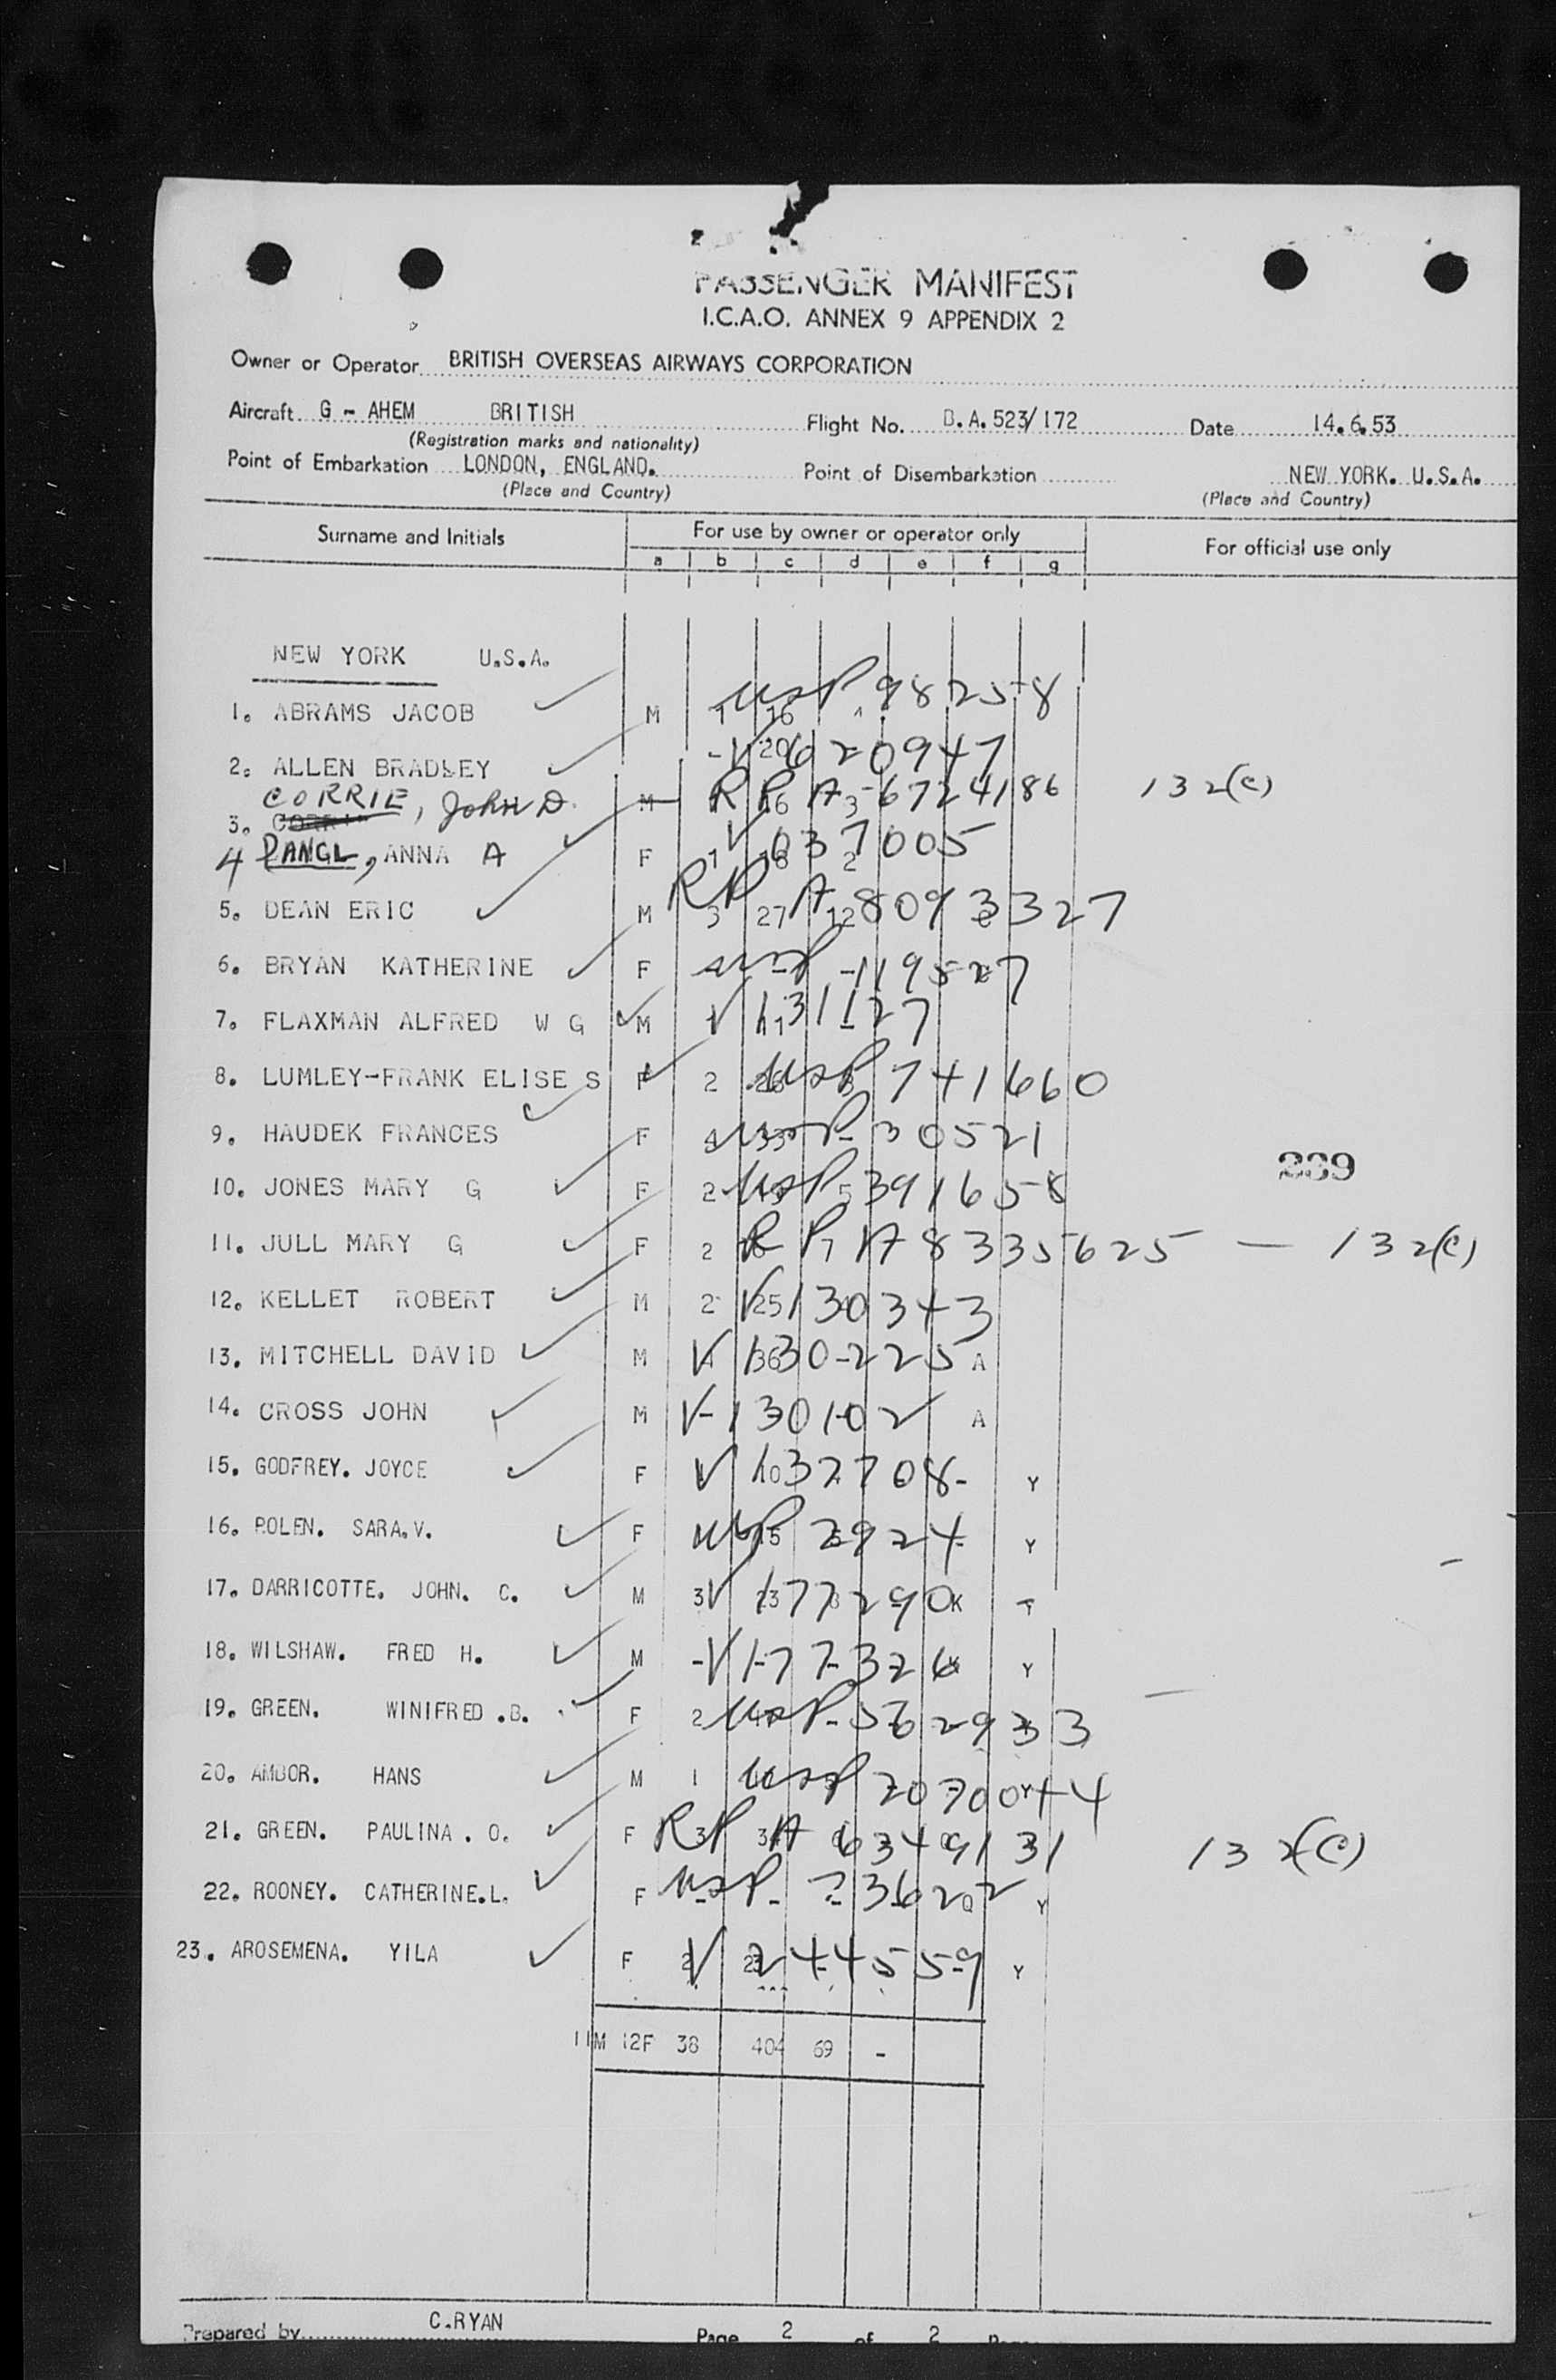 PASSENGER MANIFEST
I.C.A.O. ANNEX 9 APPENDIX 2
Owner or Operator BRITISH OVERSEAS AIRWAYS CORPORATION
Aircraft G - AHEM BRITISH Flight No. B.A.523/172 Date 14.6.53
(Registration marks and nationality)
Point of Embarkation LONDON, ENGLAND. Point of Disembarkation NEW YORK. U.S.A.
(Place and Country) (Place and Country)
Surname and Initials For use by owner or operator only For official use only
a b c d e f g
NEW YORK U.S.A.
1. ABRAMS JACOB M USP 98258
2. ALLEN BRADLEY V 620947
3. CORRIE, John D. M RP A-6724186 132(c)
4 DANGL, ANNA A F V 037005
5. DEAN ERIC M RP A 8093327
6. BRYAN KATHERINE F USP 119527
7. FLAXMAN ALFRED W G M V 131127
8. LUMLEY-FRANK ELISE S F 2 USP 741660
9. HAUDEK FRANCES F USP 30521
10. JONES MARY G F 2 USP 391658
239
11. JULL MARY G F 2 RP A 8335625 — 132(c)
12. KELLET ROBERT M 2 V 130343
13. MITCHELL DAVID M V 130225 A
14. CROSS JOHN M V-130102 A
15. GODFREY. JOYCE F V 132708 Y
16. POLEN. SARA.V. F USP 2924 Y
17. DARRICOTTE. JOHN. C. M 3 V 177290 K
18. WILSHAW. FRED H. M V 177326 Y
19. GREEN. WINIFRED .B. F 2 USP 562933
20. AMBOR. HANS M 1 USP 207044
21. GREEN. PAULINA . O. F RP A 6349131 132(c)
22. ROONEY. CATHERINE.L. F USP 23622 Y
23. AROSEMENA. YILA F V 244559 Y
11M 12F 38 404 69 -
Prepared by C.RYAN Page 2 of 2